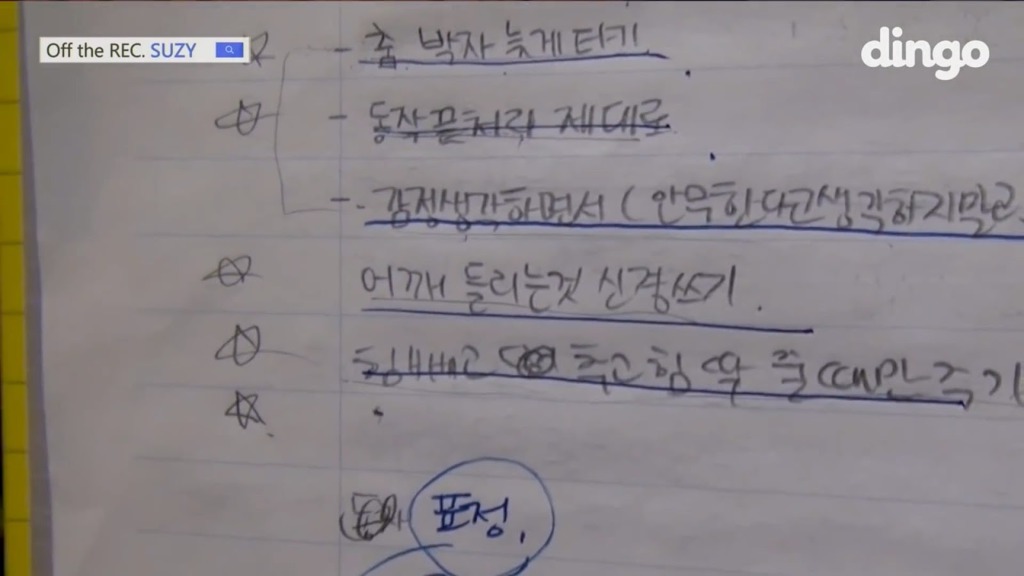 Off the REC. SUZY
dingo
- 춤 박자 늦게 타기
- 동작 끝처리 제대로
- 감정생각하면서 (안무한다고생각하지말고
어깨 들리는것 신경쓰기.
힘빼고 추고 힘 딱 줄때만 주기
표정.